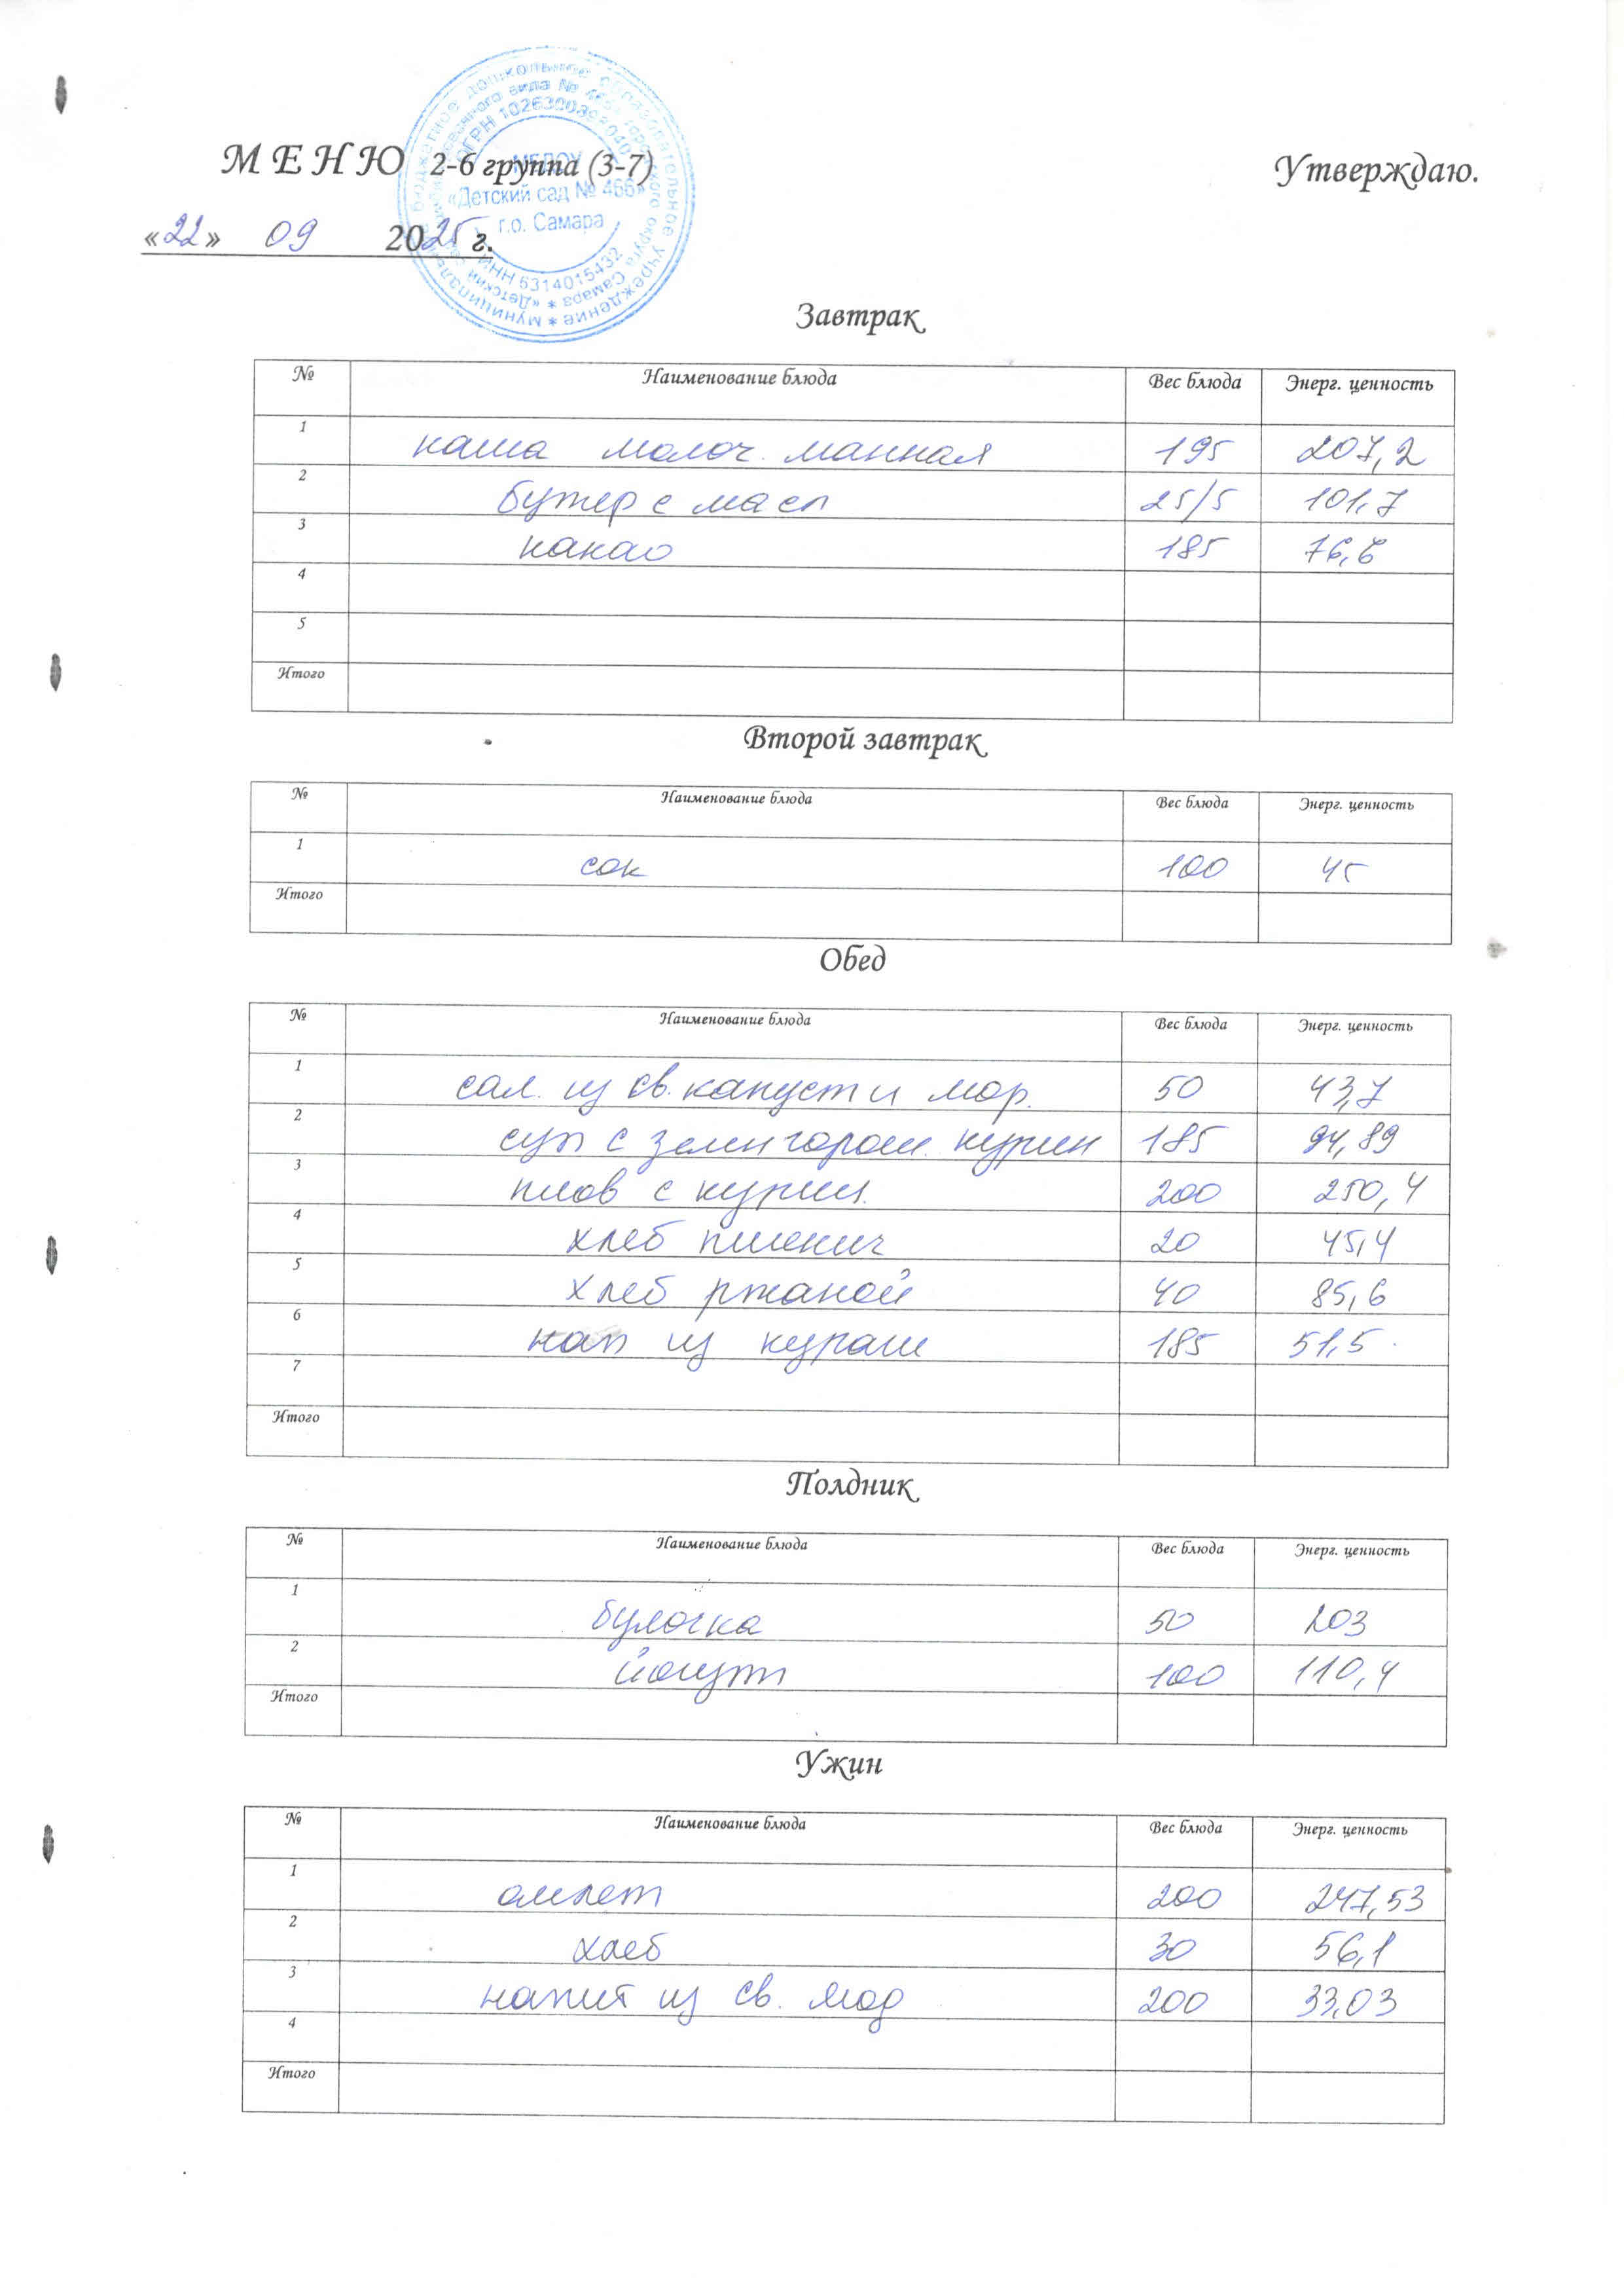 МЕНЮ 2-6 группа (3-7) Утверждаю.
«22» 09 2025 г.
МБДОУ
«Детский сад № 466»
г.о. Самара
ИНН 6314015432
Завтрак
№ Наименование блюда Вес блюда Энерг. ценность
1 каша молоч. манная 195 207,2
2 бутер с масл 25/5 101,7
3 какао 185 76,6
4
5
Итого
Второй завтрак
№ Наименование блюда Вес блюда Энерг. ценность
1 сок 100 45
Итого
Обед
№ Наименование блюда Вес блюда Энерг. ценность
1 сал. из св. капуст и мор. 50 43,7
2 суп с зелен горош. курин 185 94,89
3 плов с курин. 200 250,4
4 хлеб пшенич 20 45,4
5 хлеб ржаной 40 85,6
6 нап из кураги 185 51,5
7
Итого
Полдник
№ Наименование блюда Вес блюда Энерг. ценность
1 булочка 50 203
2 йогурт 100 110,4
Итого
Ужин
№ Наименование блюда Вес блюда Энерг. ценность
1 омлет 200 247,53
2 хлеб 30 56,1
3 напит из св. мор 200 33,03
4
Итого